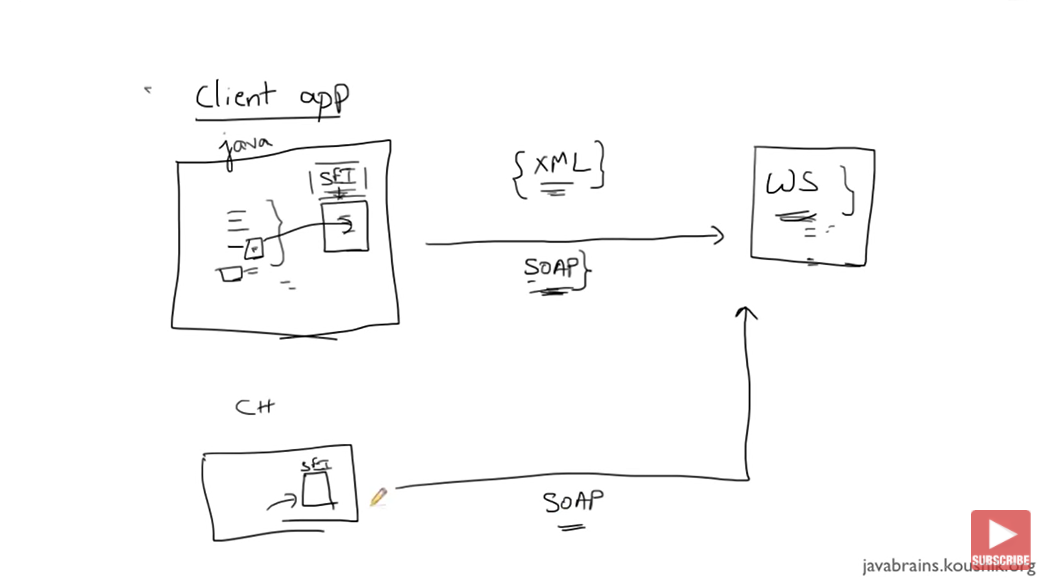 Client app
java
SEI
{XML}
WS }
SOAP}
C#
SEI
SOAP
SUBSCRIBE
javabrains.koushik.org